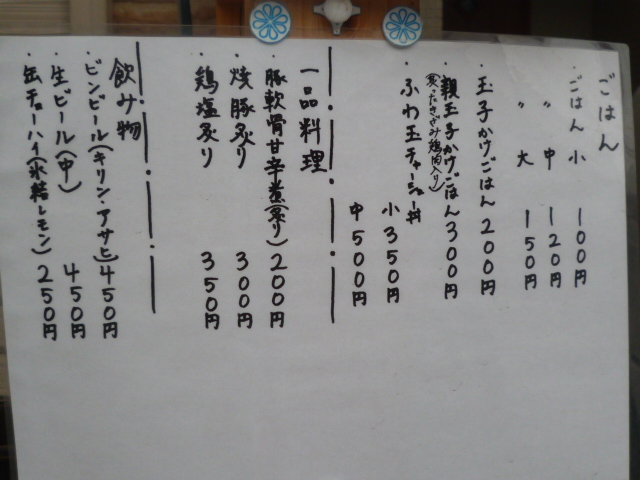 ごはん
・ごはん 小 100円
〃 中 120円
〃 大 150円
・玉子かけごはん 200円
・親玉子かけごはん 300円
・ふわ玉チャーシュー丼
小 350円
中 500円
一品料理
・豚軟骨甘辛煮(炙り) 200円
・焼豚炙り 300円
・鶏塩炙り 350円
飲み物
・ビンビール(キリン・アサヒ) 450円
・生ビール(中) 450円
・缶チューハイ(氷結レモン) 250円